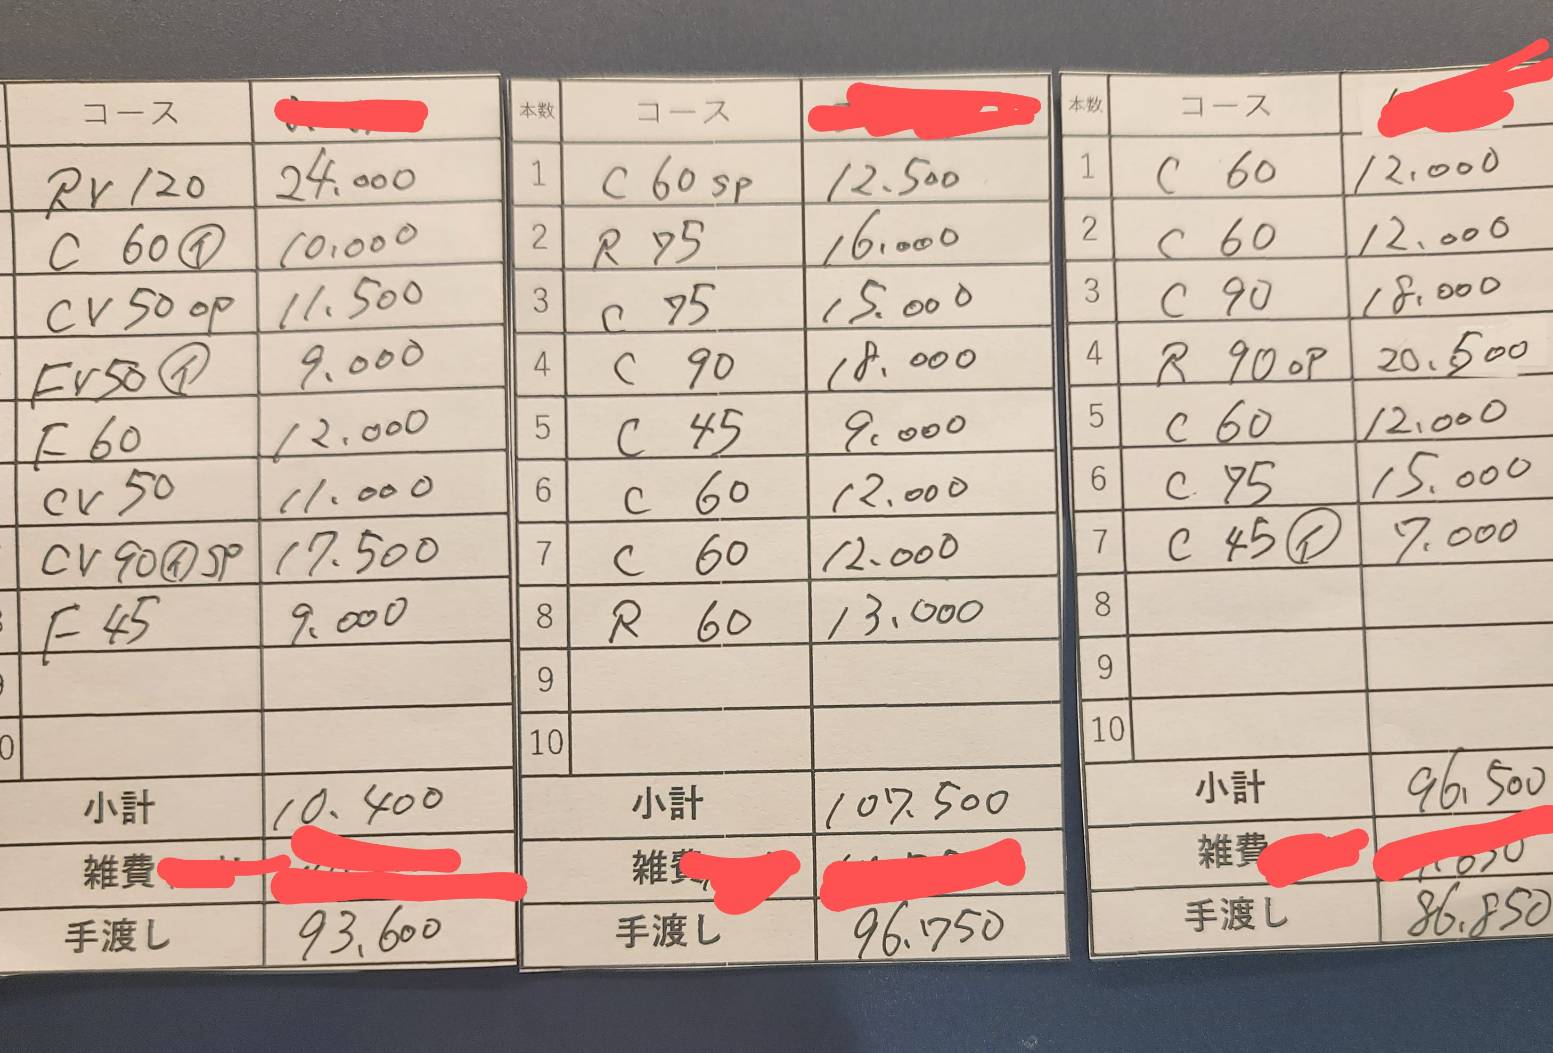 コース
RV 120 24.000
C 60㋑ 10.000
CV 50 op 11.500
FV50㋑ 9.000
F 60 12.000
CV 50 11.000
CV 90㋑ SP 17.500
F 45 9.000
0
小計 10.400
雑費
手渡し 93,600
本数 コース
1 C 60 SP 12.500
2 R 75 16.000
3 C 75 15.000
4 C 90 18.000
5 C 45 9.000
6 C 60 12.000
7 C 60 12.000
8 R 60 13.000
9
10
小計 107.500
雑費
手渡し 96.750
本数 コース
1 C 60 12.000
2 C 60 12.000
3 C 90 18.000
4 R 90 OP 20.500
5 C 60 12.000
6 C 75 15.000
7 C 45㋑ 7.000
8
9
10
小計 96,500
雑費
手渡し 86,850